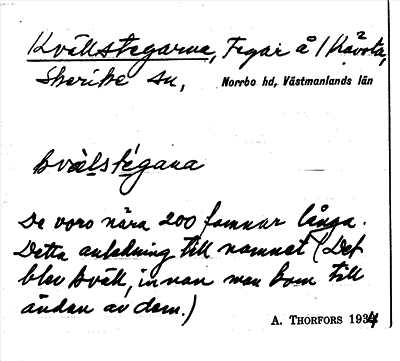 Kvällstegarna, Tegar å 1 Håvsta,
Skerike sn, Norrbo hd, Västmanlands län
kvälstégana
De voro nära 200 famnar långa.
Detta anledning till namnet (Det
blev kväll, innan man kom till
ändan av dem.)
A. THORFORS 1934